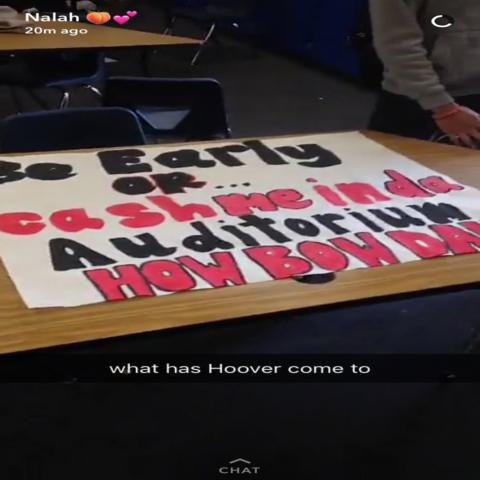 Nalah 🍑💕
20m ago
Be Early
OR...
cash me in da
Auditorium
HOW BOW DAH
what has Hoover come to
CHAT